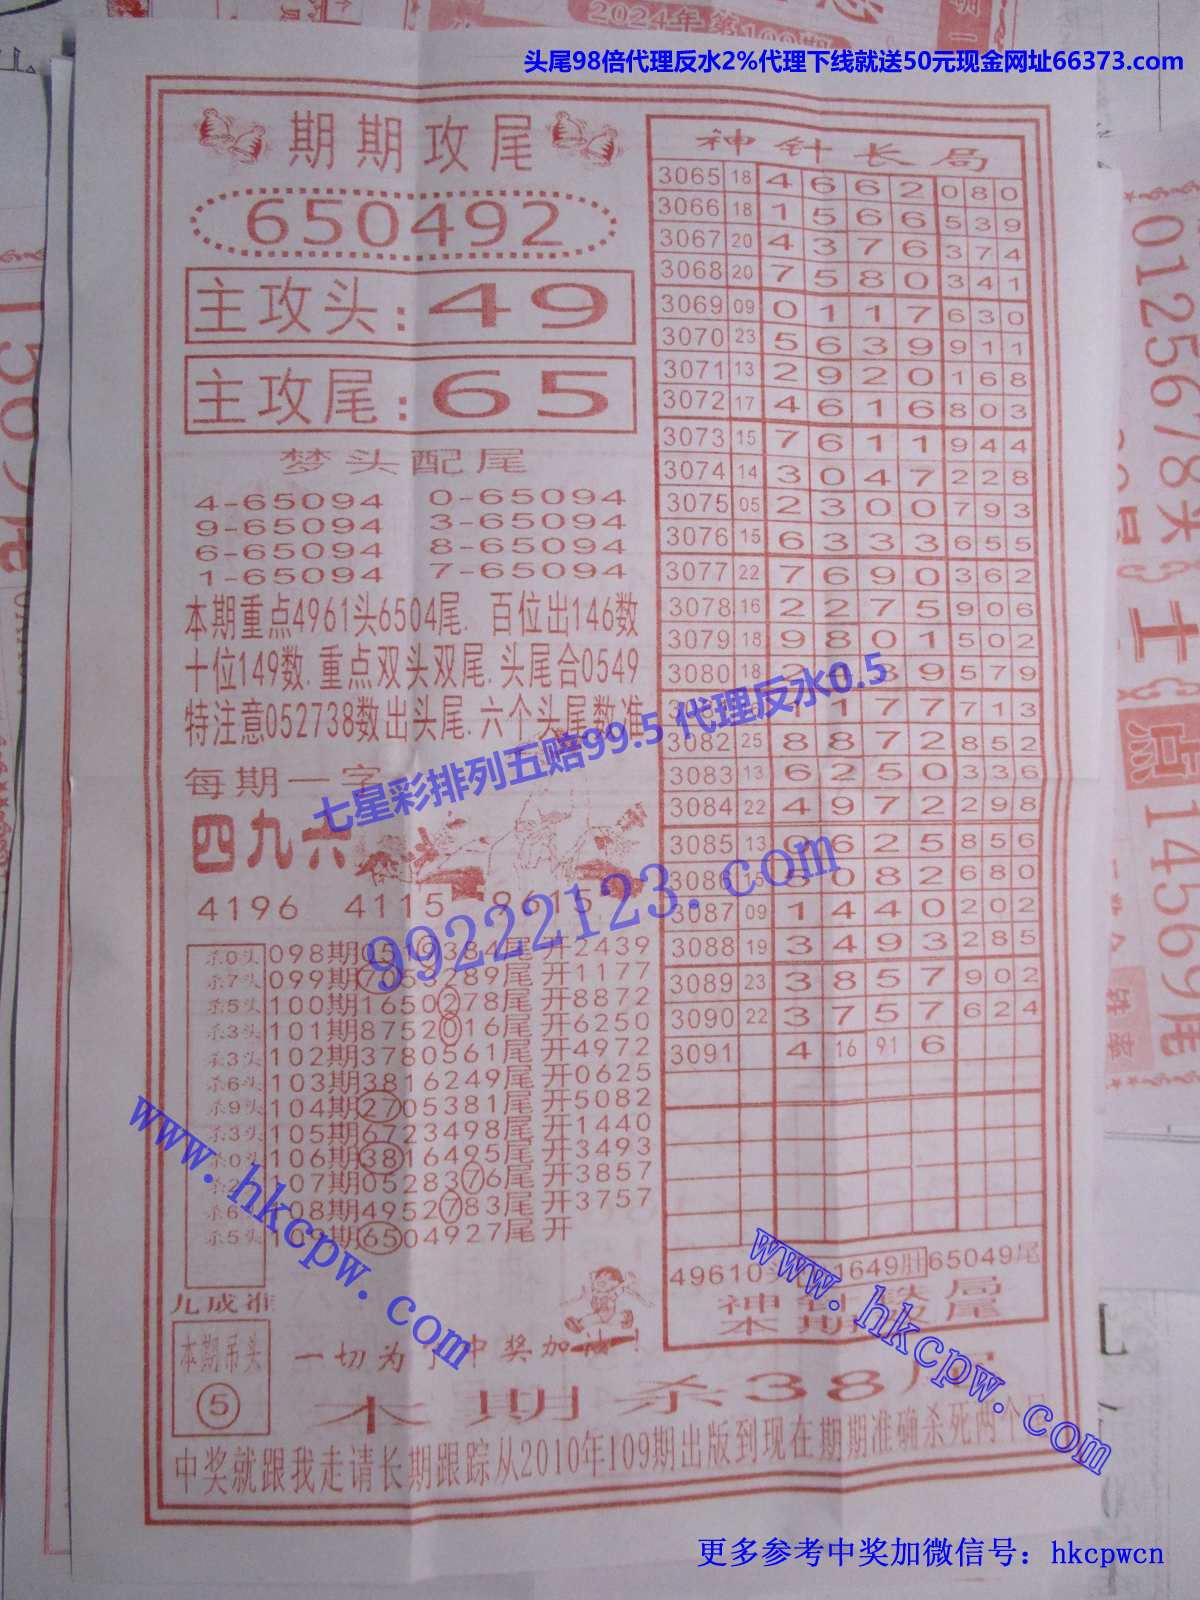 2024年第109期
头尾98倍代理反水2%代理下线就送50元现金网址66373.com
期期攻尾
650492
主攻头:49
主攻尾:65
梦头配尾
4-65094 0-65094
9-65094 3-65094
6-65094 8-65094
1-65094 7-65094
本期重点4961头6504尾. 百位出146数
十位149数.重点双头双尾.头尾合0549
特注意052738数出头尾.六个头尾数准
每期一字
四九六头
4196 4115 8615
杀0头 098期0519384尾 开2439
杀7头 099期7056289尾 开1177
杀5头 100期1650278尾 开8872
杀3头 101期8752016尾 开6250
杀3头 102期3780561尾 开4972
杀6头 103期3816249尾 开0625
杀9头 104期2705381尾 开5082
杀3头 105期6723498尾 开1440
杀0头 106期3816495尾 开3493
107期0528376尾 开3857
杀6 108期4952783尾 开3757
杀5头 109期6504927尾 开
九成准
本期吊头
⑤
一切为了中奖加油!
神针长局
3065 18 4 6 6 2 0 8 0
3066 18 1 5 6 6 5 3 9
3067 20 4 3 7 6 3 7 4
3068 20 7 5 8 0 3 4 1
3069 09 0 1 1 7 6 3 0
3070 23 5 6 3 9 9 1 1
3071 13 2 9 2 0 1 6 8
3072 17 4 6 1 6 8 0 3
3073 15 7 6 1 1 9 4 4
3074 14 3 0 4 7 2 2 8
3075 05 2 3 0 0 7 9 3
3076 15 6 3 3 3 6 5 5
3077 22 7 6 9 0 3 6 2
3078 16 2 2 7 5 9 0 6
3079 18 9 8 0 1 5 0 2
3080 18 2 4 3 9 5 7 9
1 1 7 7 7 1 3
3082 25 8 8 7 2 8 5 2
3083 13 6 2 5 0 3 3 6
3084 22 4 9 7 2 2 9 8
3085 13 0 6 2 5 8 5 6
3086 15 5 0 8 2 6 8 0
3087 09 1 4 4 0 2 0 2
3088 19 3 4 9 3 2 8 5
3089 23 3 8 5 7 9 0 2
3090 22 3 7 5 7 6 2 4
3091 4 16 91 6
49610头 1649肚 65049尾
神针长局
本期杀38尾
中奖就跟我走请长期跟踪从2010年109期出版到现在期期准确杀死两个尾
七星彩排列五赔99.5 代理反水0.5
99222123.com
www.hkcpw.com
www.hkcpw.com
更多参考中奖加微信号：hkcpwcn
0125678头
点14569尾